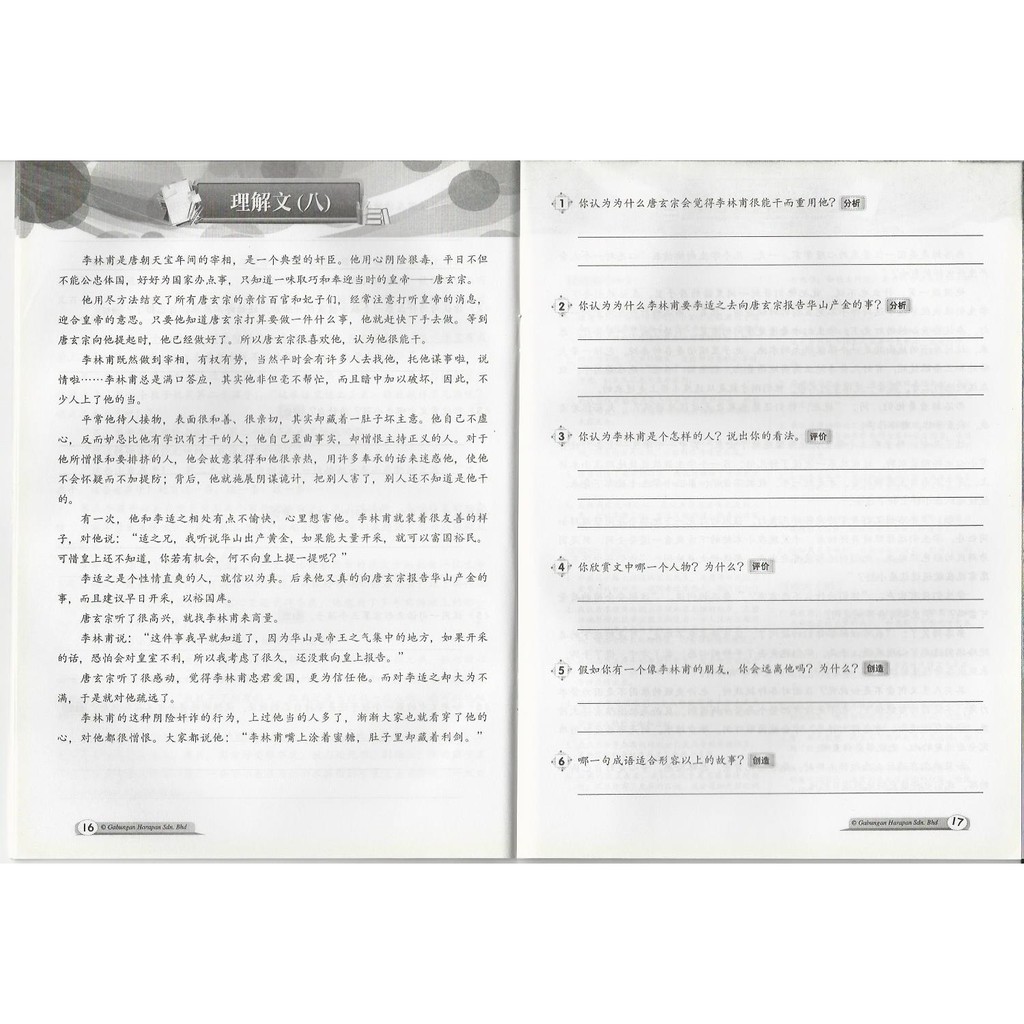 理解文(八)
李林甫是唐朝天宝年间的宰相，是一个典型的奸臣。他用心阴险狠毒，平日不但
不能公忠体国，好好为国家办点事，只知道一味取巧和奉迎当时的皇帝——唐玄宗。
他用尽方法结交了所有唐玄宗的亲信百官和妃子们，经常注意打听皇帝的消息，
迎合皇帝的意思。只要他知道唐玄宗打算要做一件什么事，他就赶快下手去做。等到
唐玄宗向他提起时，他已经做好了。所以唐玄宗很喜欢他，认为他很能干。
李林甫既然做到宰相，有权有势，当然平时会有许多人去找他，托他谋事啦，说
情啦……李林甫总是满口答应，其实他非但毫不帮忙，而且暗中加以破坏，因此，不
少人上了他的当。
平常他待人接物，表面很和善、很亲切，其实却藏着一肚子坏主意。他自己不虚
心，反而妒忌比他有学识有才干的人；他自己歪曲事实，却憎恨主持正义的人。对于
他所憎恨和要排挤的人，他会故意装得和他很亲热，用许多奉承的话来迷惑他，使他
不会怀疑而不加提防；背后，他就施展阴谋诡计，把别人害了，别人还不知道是他干
的。
有一次，他和李适之相处有点不愉快，心里想害他。李林甫就装着很友善的样
子，对他说：“适之兄，我听说华山出产黄金，如果能大量开采，就可以富国裕民。
可惜皇上还不知道，你若有机会，何不向皇上提一提呢？”
李适之是个性情直爽的人，就信以为真。后来他又真的向唐玄宗报告华山产金的
事，而且建议早日开采，以裕国库。
唐玄宗听了很高兴，就找李林甫来商量。
李林甫说：“这件事我早就知道了，因为华山是帝王之气集中的地方，如果开采
的话，恐怕会对皇室不利，所以我考虑了很久，还没敢向皇上报告。”
唐玄宗听了很感动，觉得李林甫忠君爱国，更为信任他。而对李适之却大为不
满，于是就对他疏远了。
李林甫的这种阴险奸诈的行为，上过他当的人多了，渐渐大家也就看穿了他的
心，对他都很憎恨。大家都说他：“李林甫嘴上涂着蜜糖，肚子里却藏着利剑。”
16 © Gabungan Harapan Sdn. Bhd
1 你认为为什么唐玄宗会觉得李林甫很能干而重用他？ 分析
2 你认为为什么李林甫要李适之去向唐玄宗报告华山产金的事？ 分析
3 你认为李林甫是个怎样的人？说出你的看法。 评价
4 你欣赏文中哪一个人物？为什么？ 评价
5 假如你有一个像李林甫的朋友，你会远离他吗？为什么？ 创造
6 哪一句成语适合形容以上的故事？ 创造
© Gabungan Harapan Sdn. Bhd 17